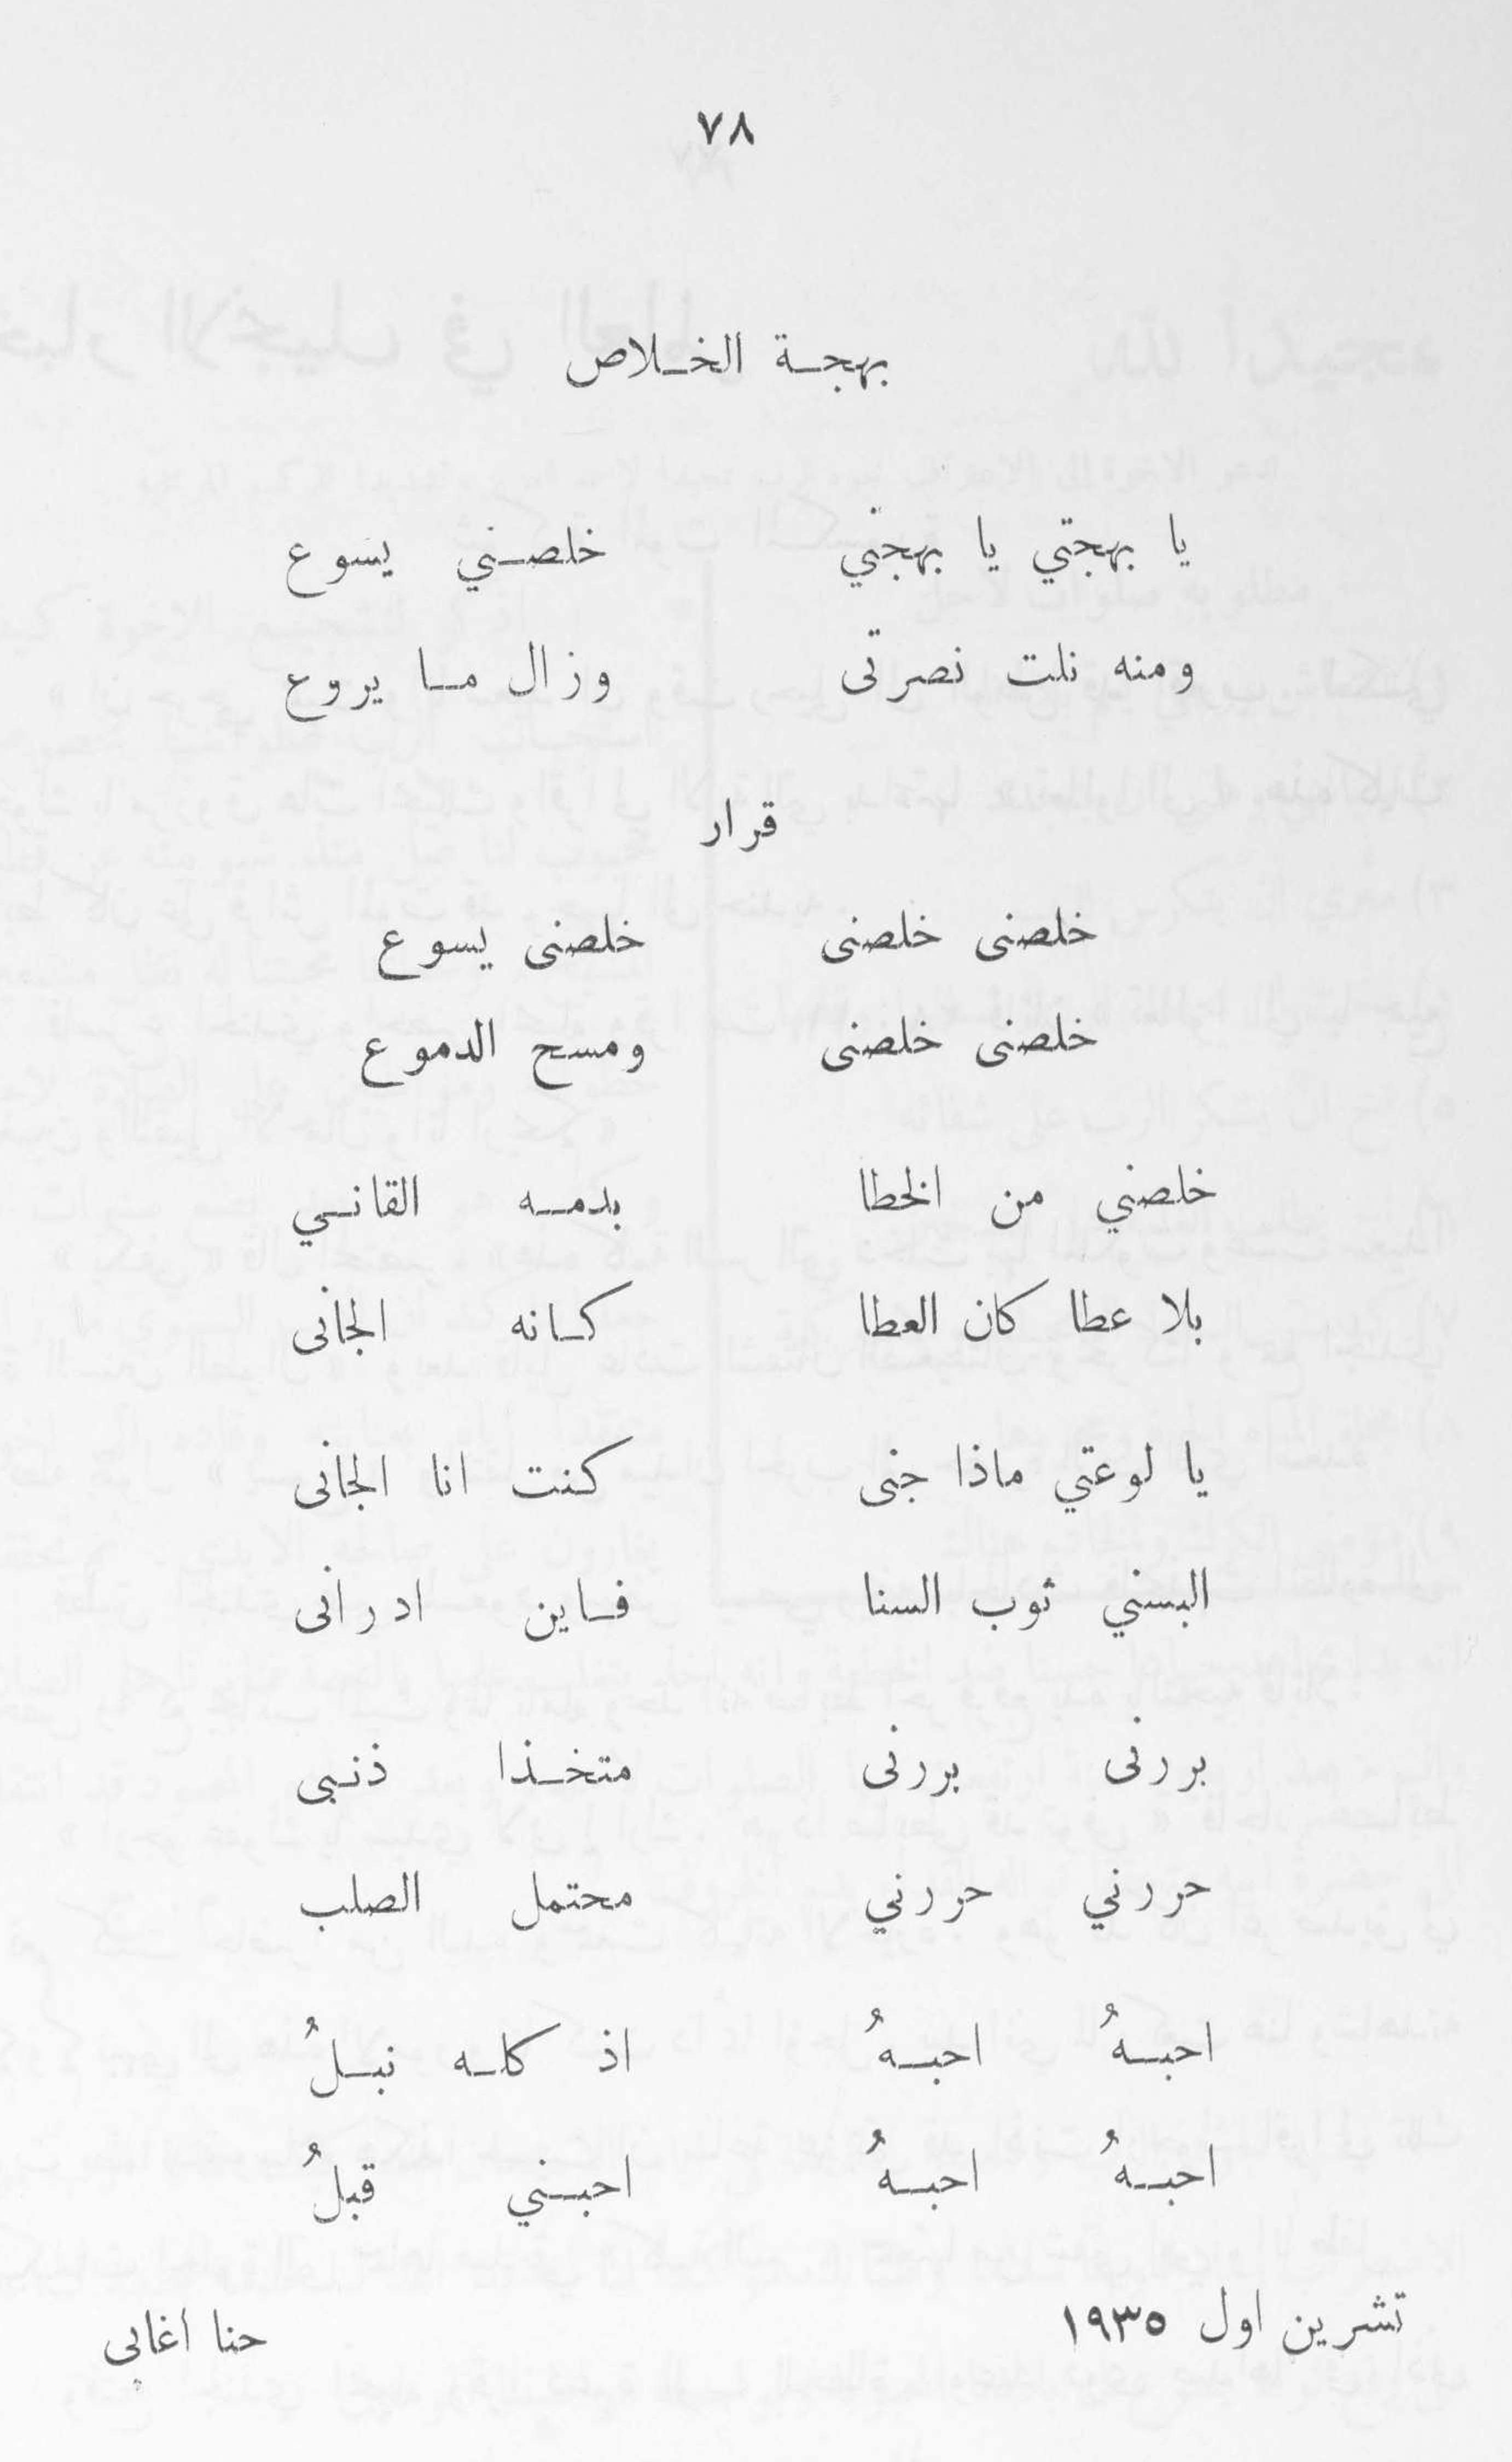 ٧٨
بهجة الخلاص
يا بهجتي يا بهجتي خلصني يسوع
ومنه نلت نصرتى وزال ما يروع
قرار
خلصنى خلصنى خلصنى يسوع
خلصنى خلصنى ومسح الدموع
خلصني من الخطا بدمه القاني
بلا عطا كان العطا كانه الجانى
يا لوعتي ماذا جنى كنت انا الجانى
البسني ثوب السنا فاين ادرانى
بررنى بررنى متخذا ذنبى
حررني حررني محتمل الصلب
احبهُ احبهُ اذ كله نبلُ
احبهُ احبهُ احبني قبلُ
تشرين اول ١٩٣٥ حنا اغابى